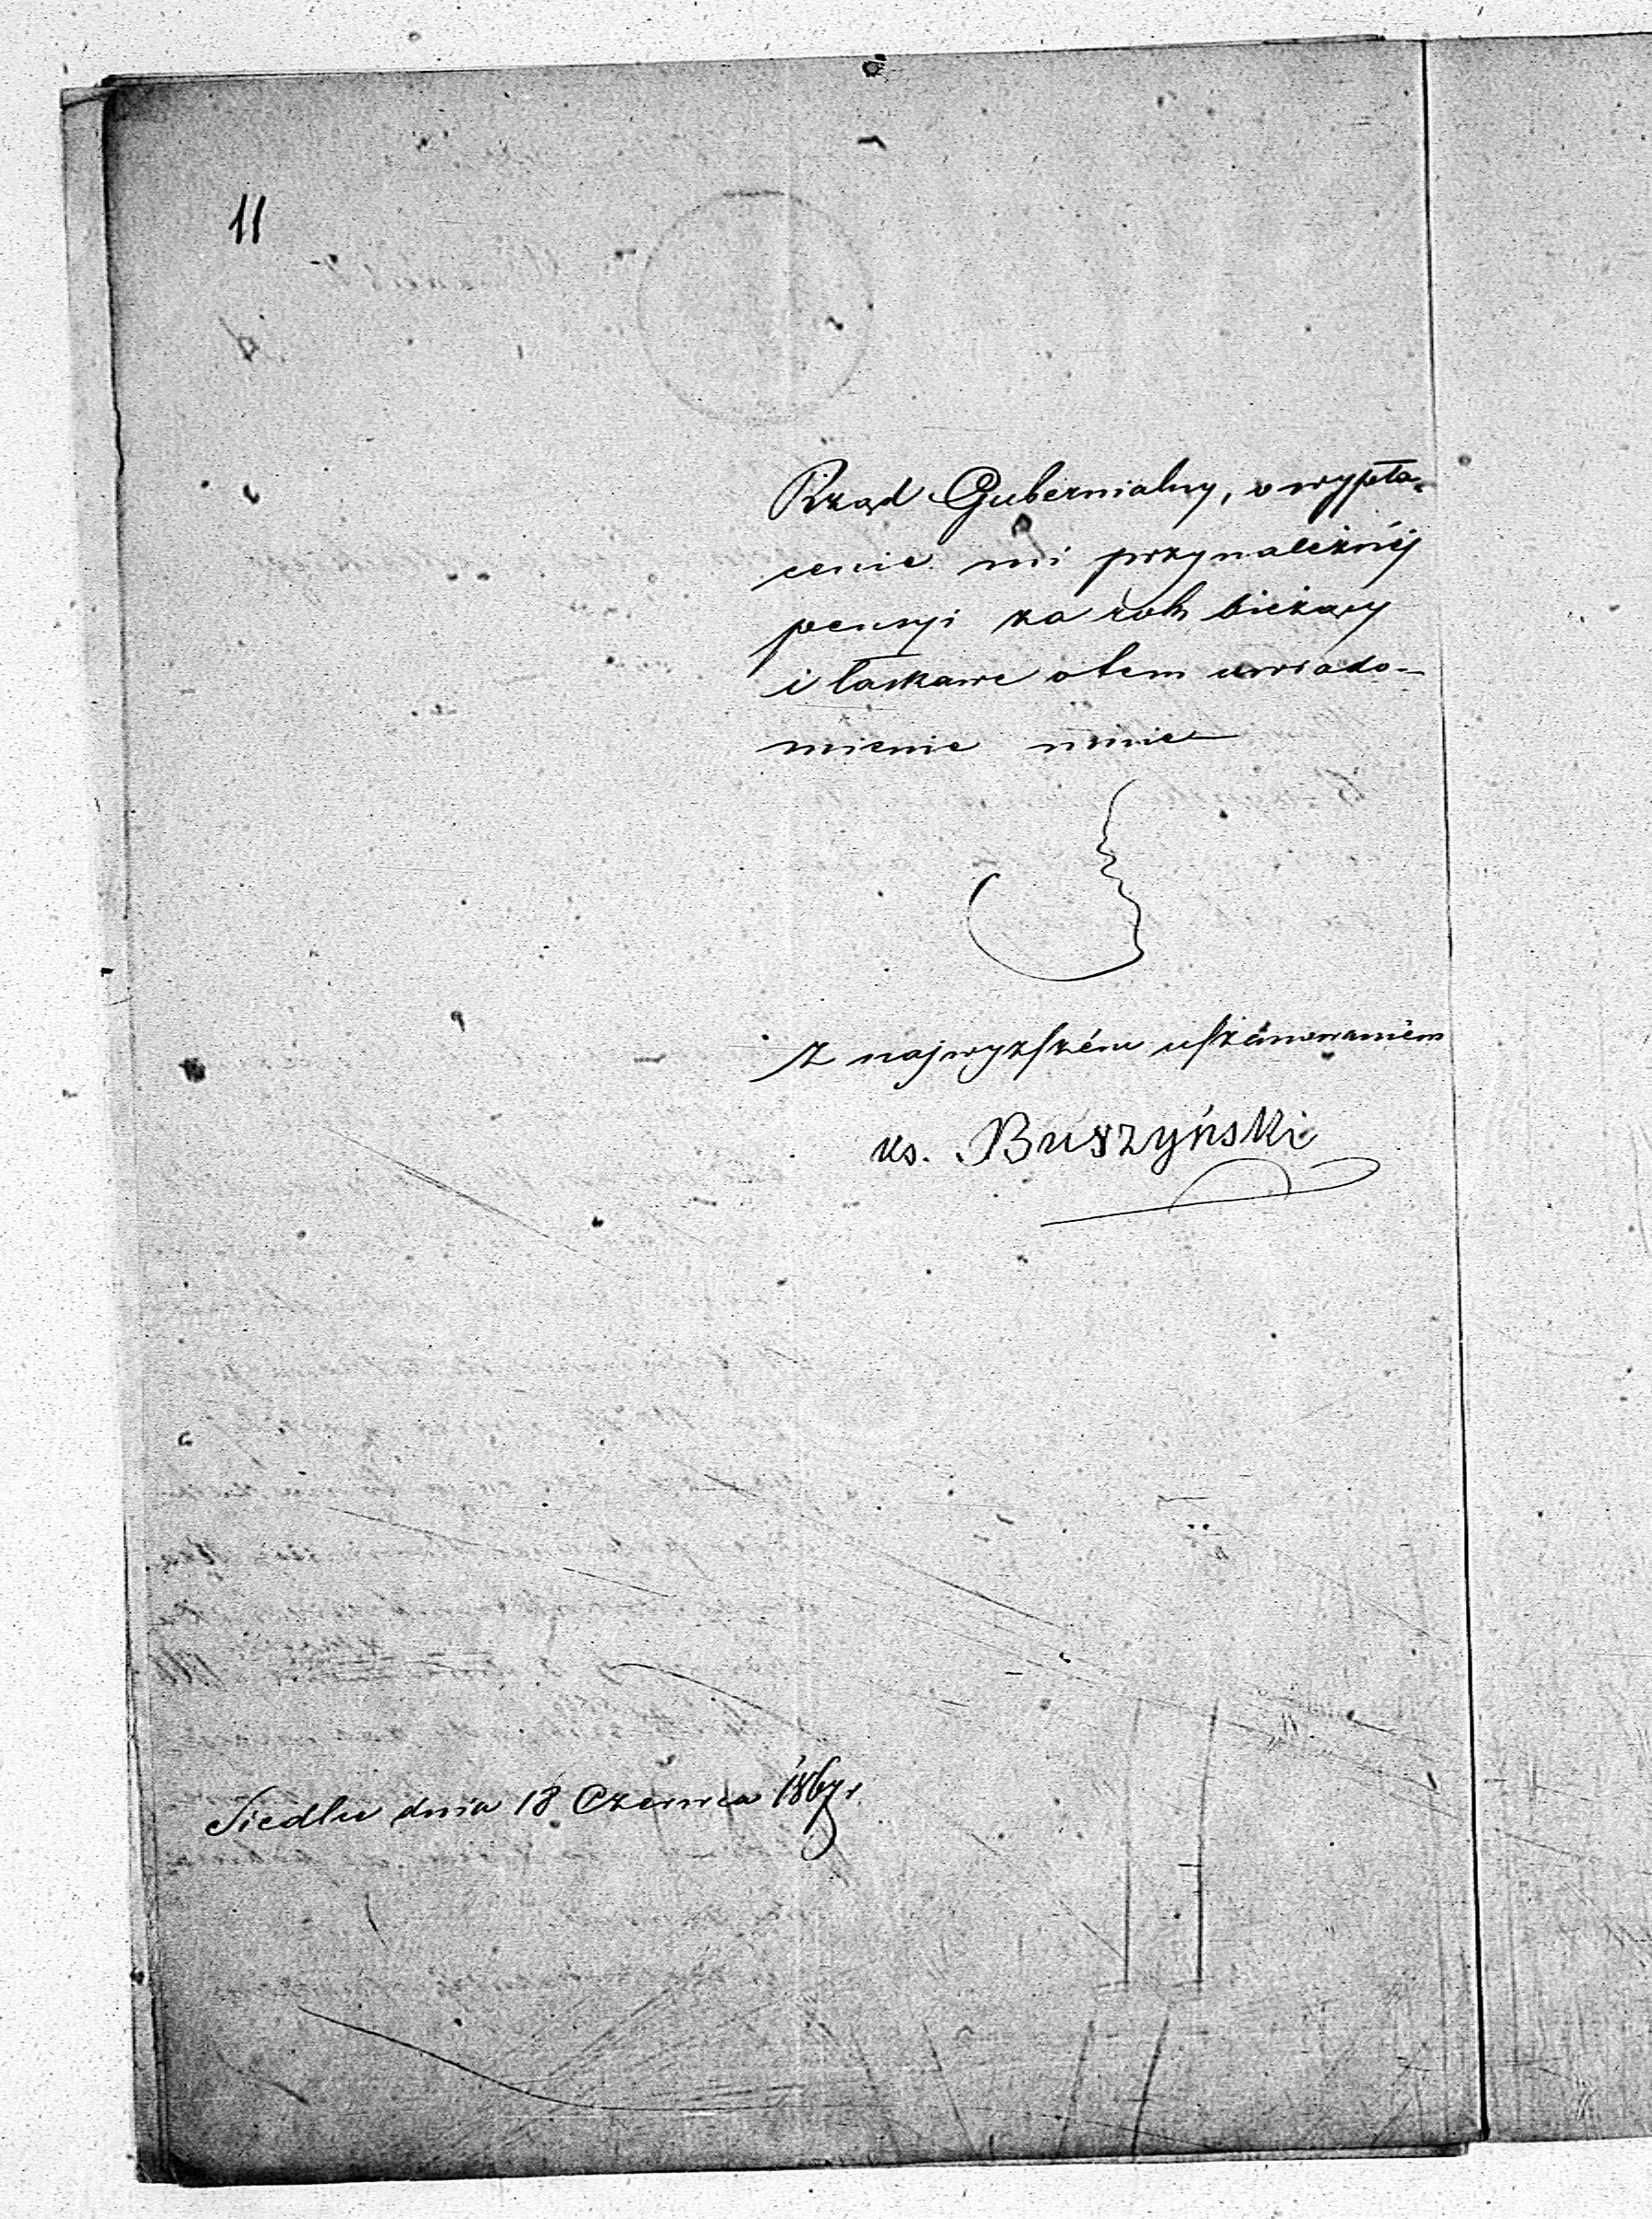 11
Rząd Gubernialny, o wypła-
cenie mi przynależnéj
pensyi za rok bieżący
i łaskawe otem uwiado-
mienie mnie
Z najwyższém uszanowaniem
ks. Buszyński
Siedlce dnia 18 Czerwca 1867 r.